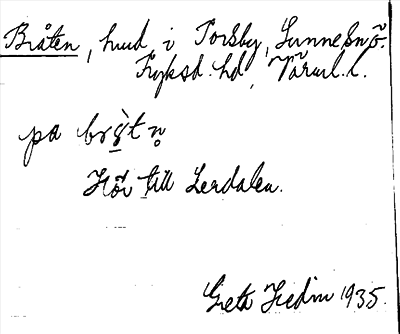 Bråten, hmd i Torsby, Sunne sn ö.
Fryksd. hd, Värml. l.
på brǫ̀tn̥
Hör till Lerdalen.
Greta Hedin 1935.